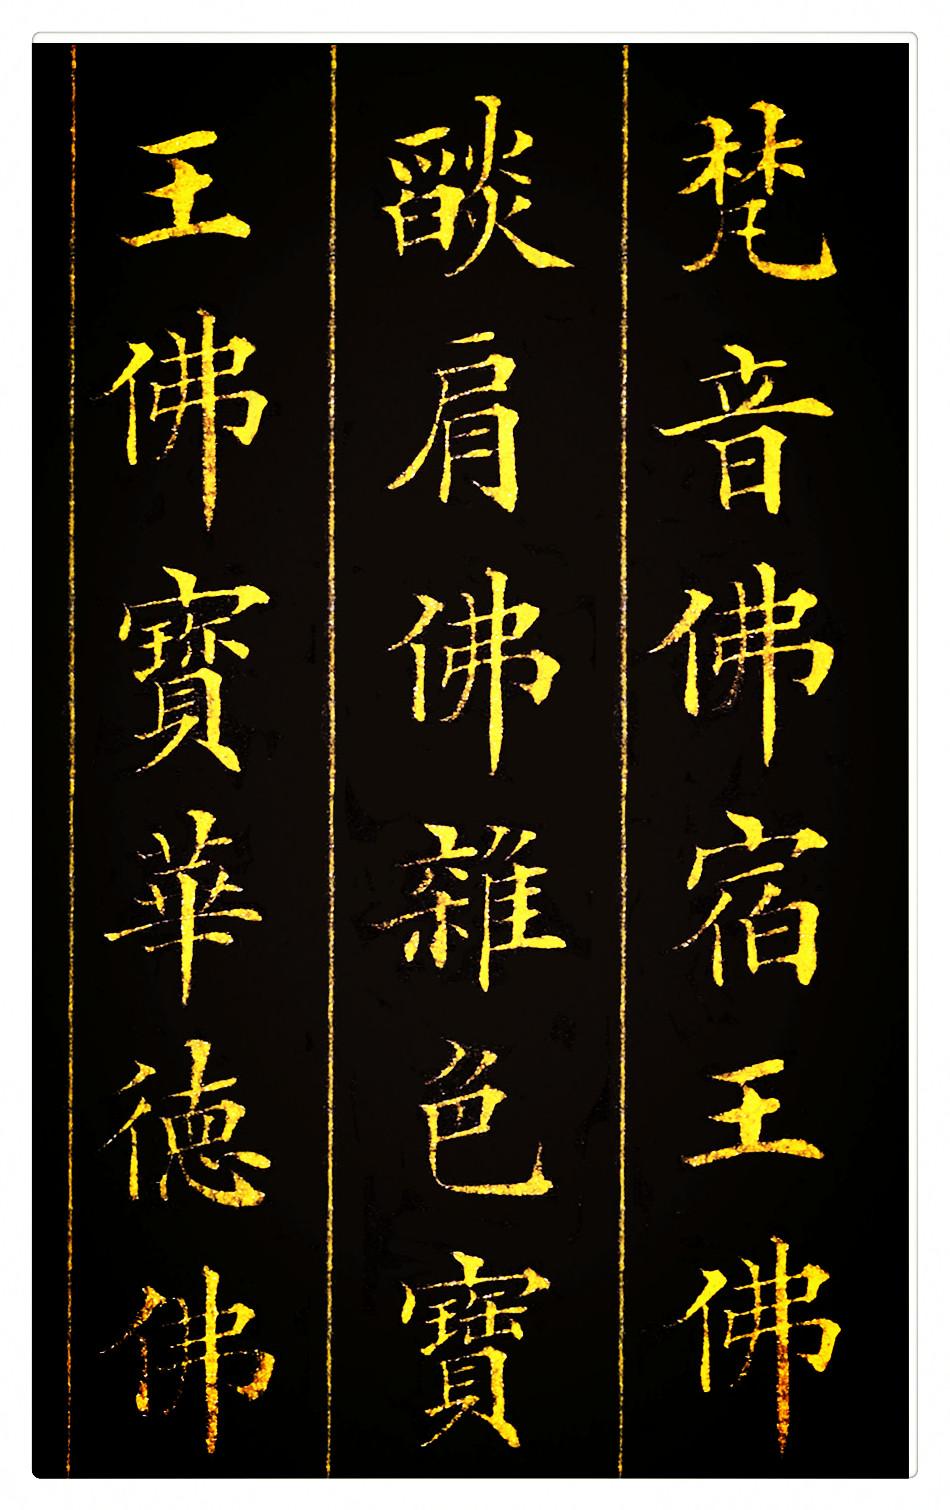 梵音佛宿王佛
燄肩佛雜色寶
王佛寶華德佛